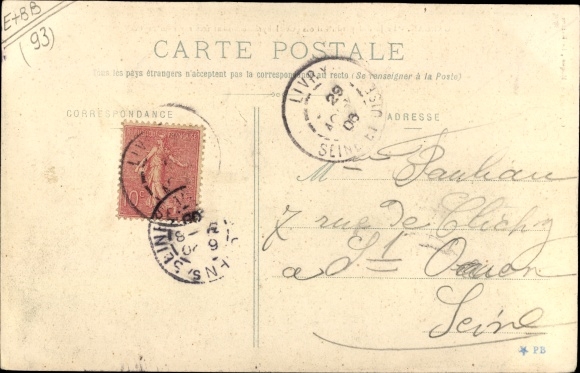 E+BB
(93)
CARTE POSTALE
Tous les pays étrangers n'acceptent pas la correspondance au recto (Se renseigner à la Poste)
CORRESPONDANCE
ADRESSE
LIVRY
29
08
SEINE ET OISE
10
Mme Paulian
7 rue de Clichy
à St Ouen
Seine
SEINE
PB